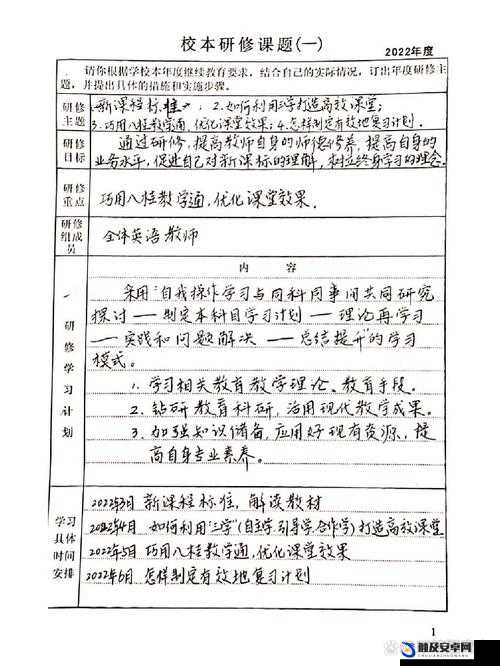 校本研修课题(一)
2022年度
请你根据学校本年度继续教育要求，结合自己的实际情况，订出年度研修主
题，并提出具体的措施和实施步骤。
研修
主题
1.新课程标准；2.如何利用三学打造高效课堂；
3.巧用八桂教学通，优化课堂效果；4.怎样制定有效地复习计划.
研修
目标
通过研修，提高教师自身的师德修养，提高自身的
业务水平，促进自己对新课标的理解，树立终身学习的理念。
研修
重点
巧用八桂教学通，优化课堂效果.
研修
组成
员
全体英语教师
研修学习计划
内 容
采用“自我操作学习与同科同事间共同研究
探讨——制定本科目学习计划——理论再学习
——实践和问题解决——总结提升”的学习
模式。
1. 学习相关教育教学理论、教育手段。
2. 钻研教育科研，活用现代教学成果。
3. 加强知识储备，应用好现有资源，提
高自身专业素养。
学习
具体
时间
安排
2022年3月 新课程标准，解读教材
2022年4月 如何利用“三学”(自主学、引导学、合作学)打造高效课堂
2022年5月 巧用八桂教学通，优化课堂效果
2022年6月 怎样制定有效地复习计划
1
触及安卓网